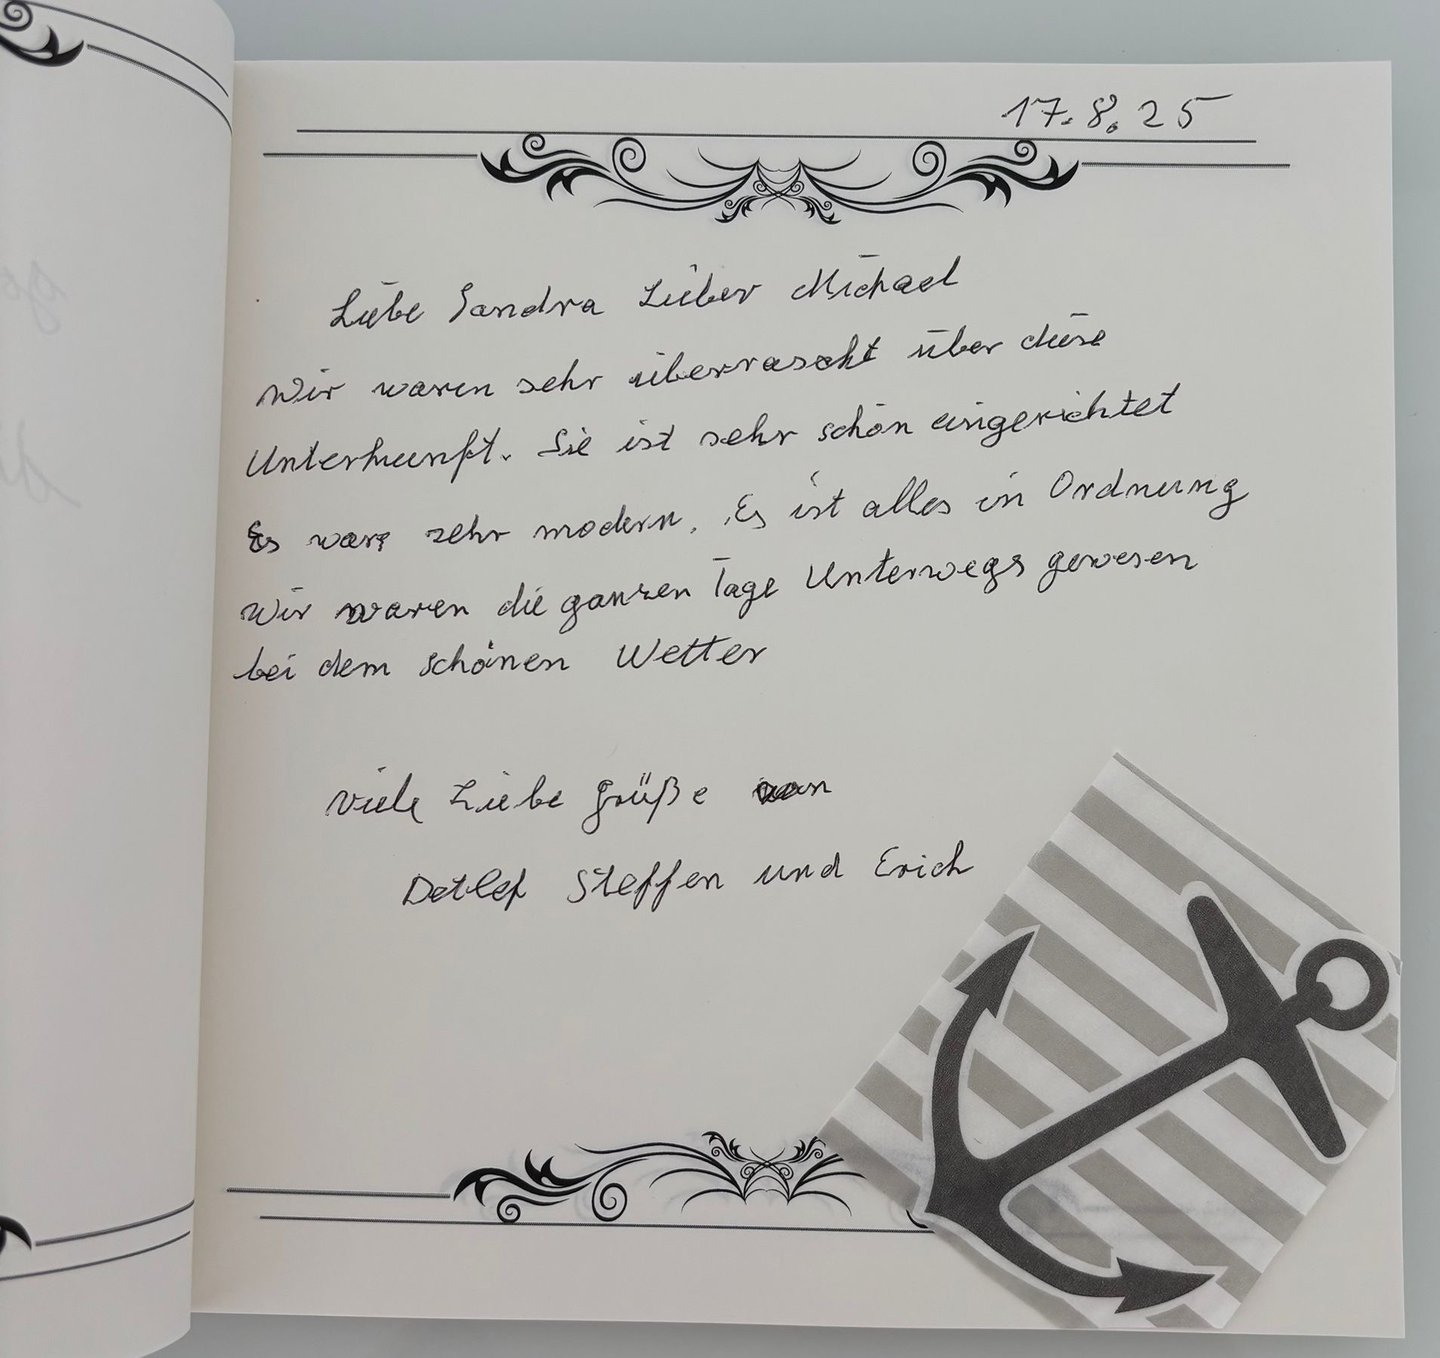 17.8.25
Liebe Sandra Lieber Michael
Wir waren sehr überrascht über diese
Unterkunft. Sie ist sehr schön eingerichtet
Es war sehr modern. Es ist alles in Ordnung
Wir waren die ganzen Tage Unterwegs gewesen
bei dem schönen Wetter
viele Liebe Grüße von
Detlef Steffen und Erich